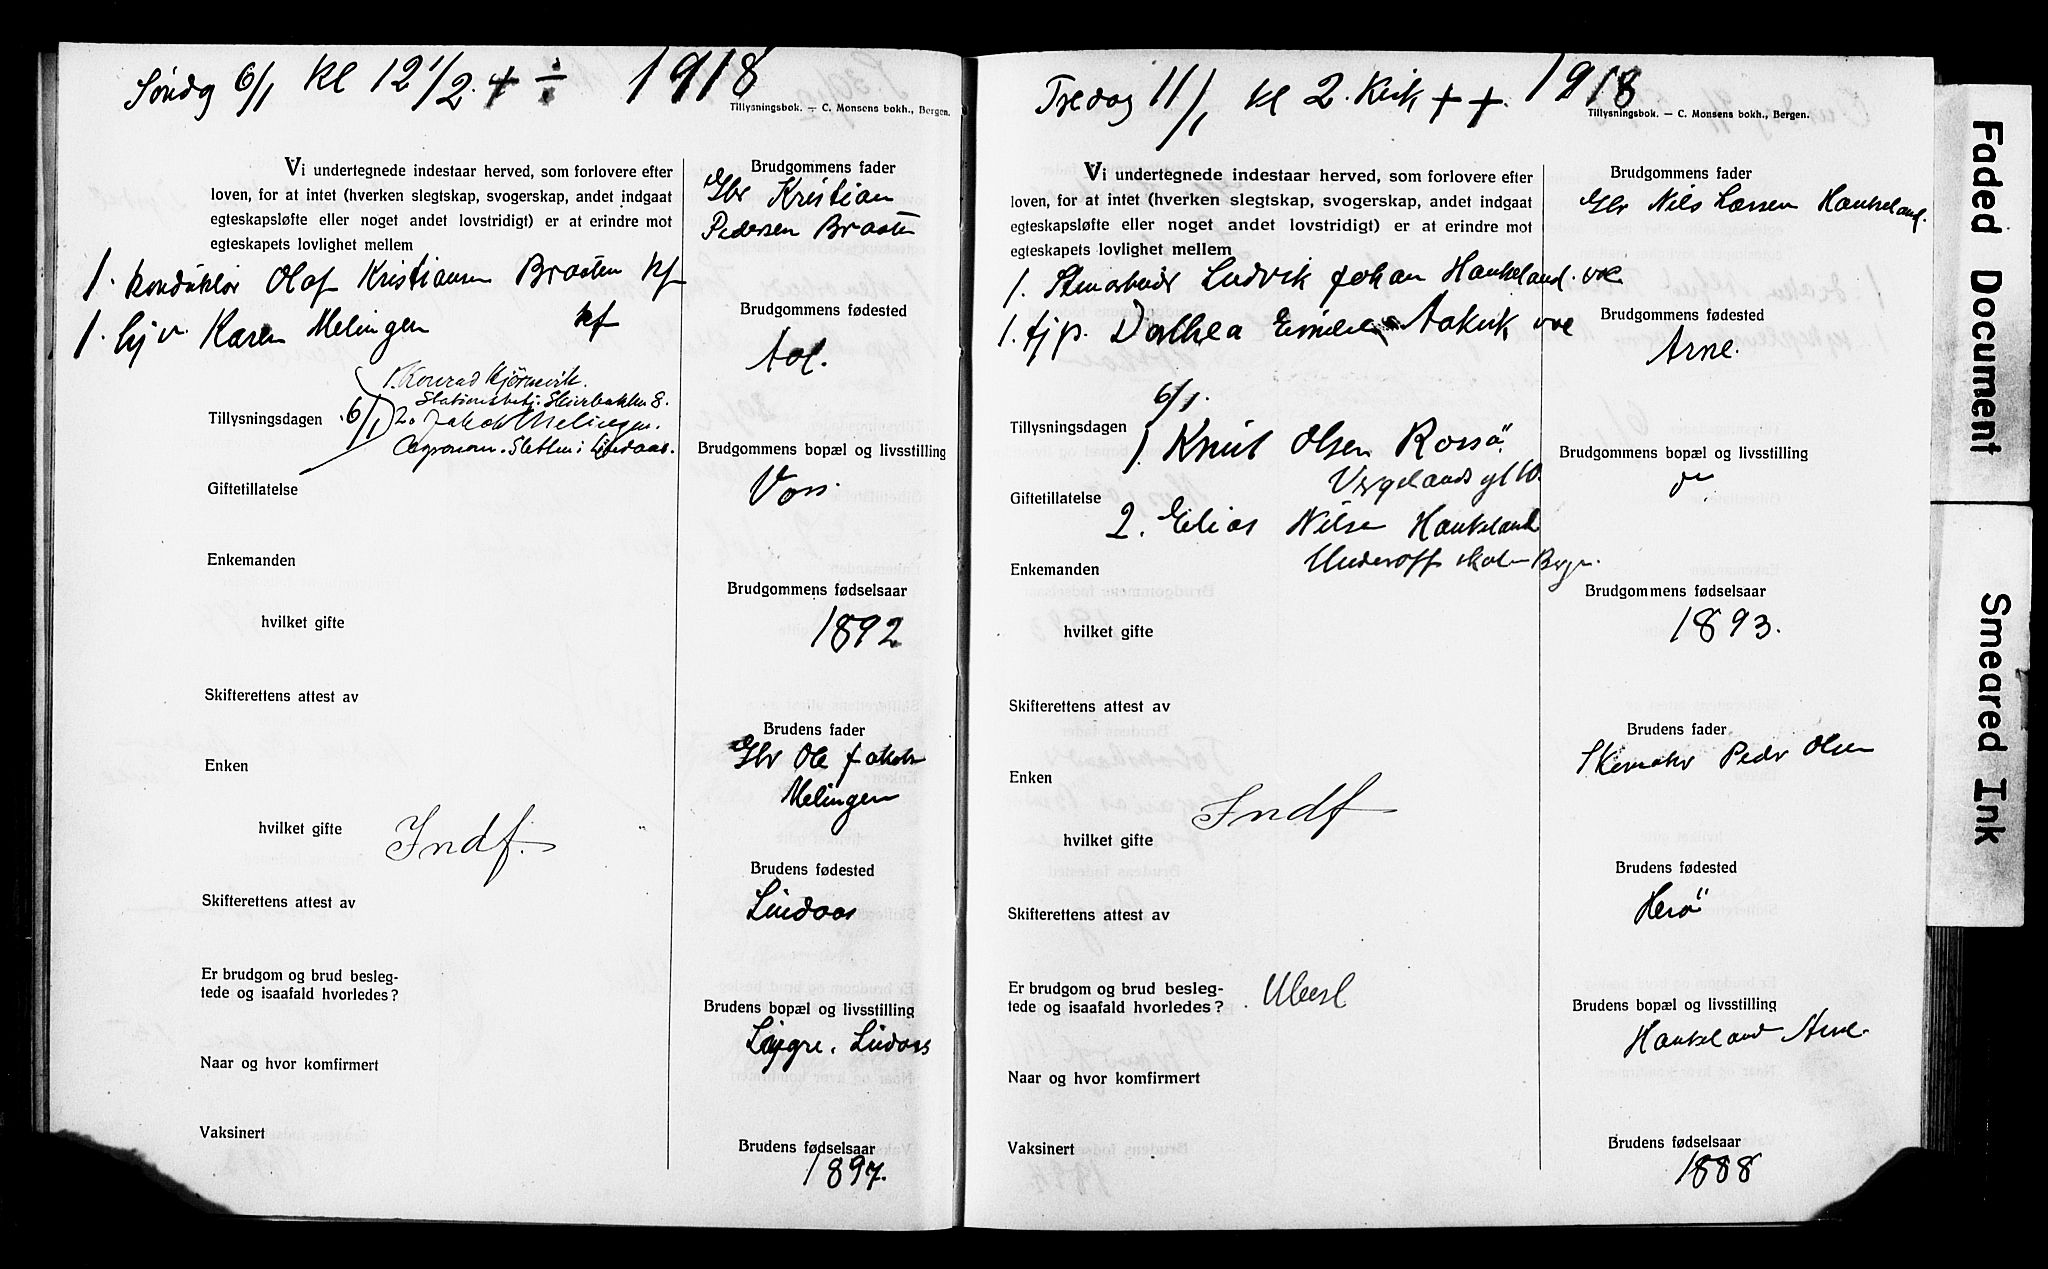 Søndg 6/1 kl 12 1/2 + ÷ 1918
Tillysningsbok. — C. Monsens bokh., Bergen.
Vi undertegnede indestaar herved, som forlovere efter
loven, for at intet (hverken slegtskap, svogerskap, andet indgaat
egteskapsløfte eller noget andet lovstridigt) er at erindre mot
egteskapets lovlighet mellem
1. konduktør Olaf Kristiansen Braaten kf
1. hjv. Karen Melingen kf
1. Konrad Kjørnevik.
Stationsbetj. 8.
Tillysningsdagen 6/1 2. Jakob Melingen.
Agronom. Sletten i Lindaas.
Giftetillatelse
Enkemanden
hvilket gifte
Skifterettens attest av
Enken
hvilket gifte
Indf.
Skifterettens attest av
Er brudgom og brud besleg-
tede og isaafald hvorledes?
Naar og hvor komfirmert
Vaksinert
Brudgommens fader
Gbr Kristian
Pedersen Braaten
Brudgommens fødested
Aal.
Brudgommens bopæl og livsstilling
Voss.
Brudgommens fødselsaar
1892
Brudens fader
Gbr Ole Jakobs
Melingen
Brudens fødested
Lindaas
Brudens bopæl og livsstilling
Lygre. Lindaas
Brudens fødselsaar
1897.
Fredag 11/1 kl 2. Kirk + +. 1918
Tillysningsbok. — C. Monsens bokh., Bergen.
Vi undertegnede indestaar herved, som forlovere efter
loven, for at intet (hverken slegtskap, svogerskap, andet indgaat
egteskapsløfte eller noget andet lovstridigt) er at erindre mot
egteskapets lovlighet mellem
1. Stenarbeid Ludvik Johan Haukeland.
1. tjp. Dorthea Aakvik
6/1.
Tillysningsdagen
1. Knut Olsen Rossö
Vergelandsgt 10.
Giftetillatelse
2. Elias Nilsen Haukeland
Underoff skolen Bergen.
Enkemanden
hvilket gifte
Skifterettens attest av
Enken
Indf
hvilket gifte
Skifterettens attest av
Er brudgom og brud besleg-
tede og isaafald hvorledes? Ubesl
Naar og hvor komfirmert
Vaksinert
Brudgommens fader
Gbr Nils Larsen Haukeland.
Brudgommens fødested
Arne.
Brudgommens bopæl og livsstilling
Brudgommens fødselsaar
1893.
Brudens fader
Peder Olsen
Brudens fødested
Herö
Brudens bopæl og livsstilling
Haukeland Arne.
Brudens fødselsaar
1888
Faded Document
Smeared Ink